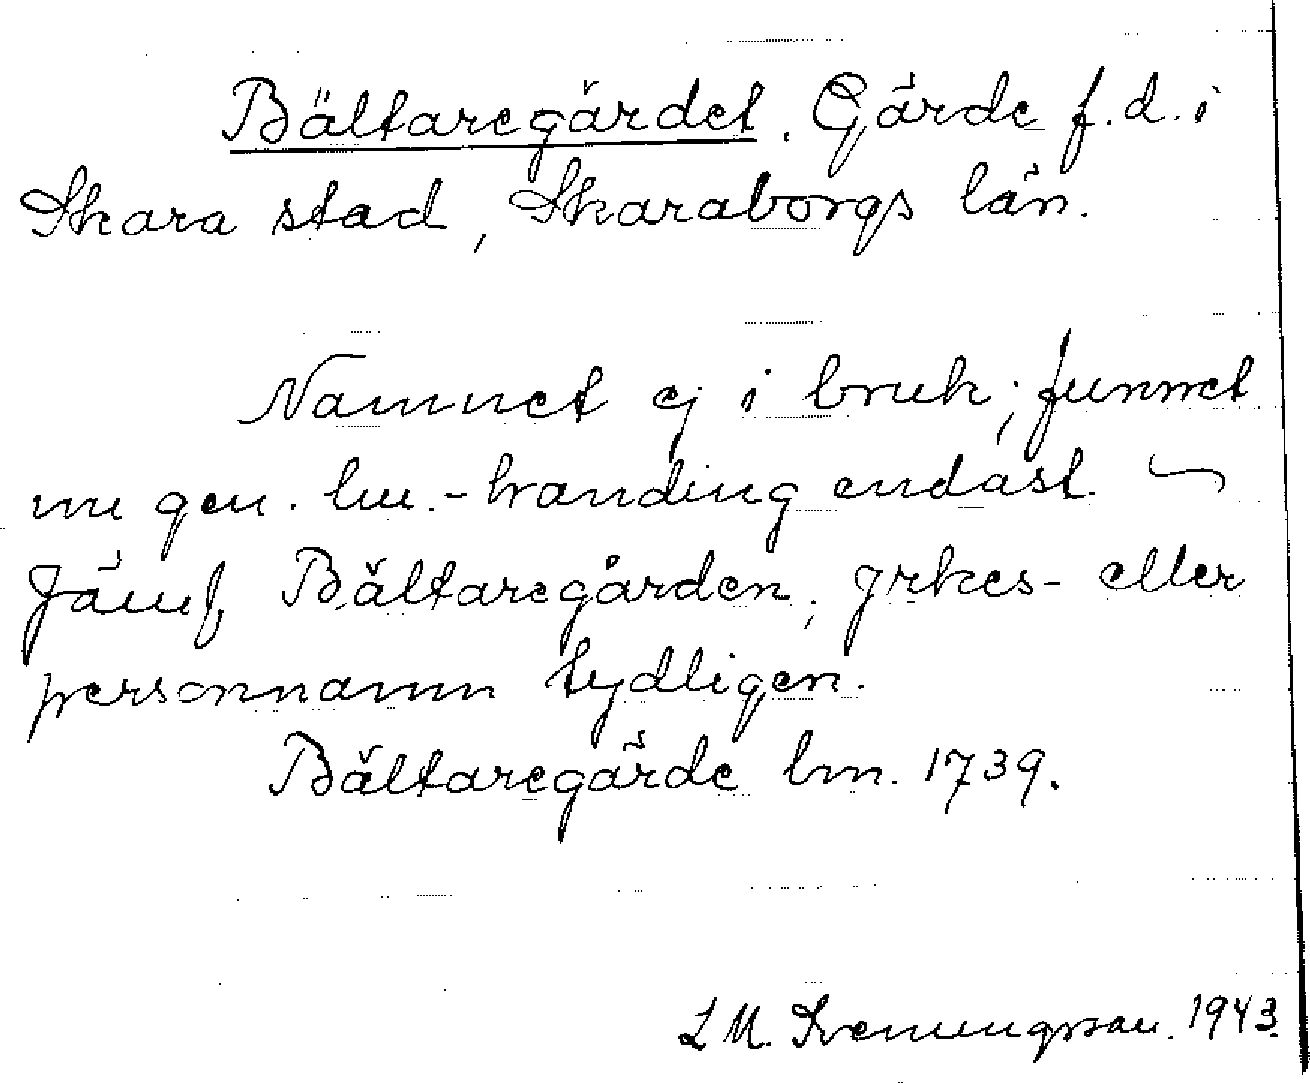 Bältaregärdet. Gärde f.d. i
Skara stad, Skaraborgs län.
Namnet ej i bruk; funnet
nu gen. lm.-handling endast.
Jämf. Bältaregården, yrkes- eller
personnamn tydligen.
Bältaregärde lm. 1739.
L M. Svenungsson. 1943.